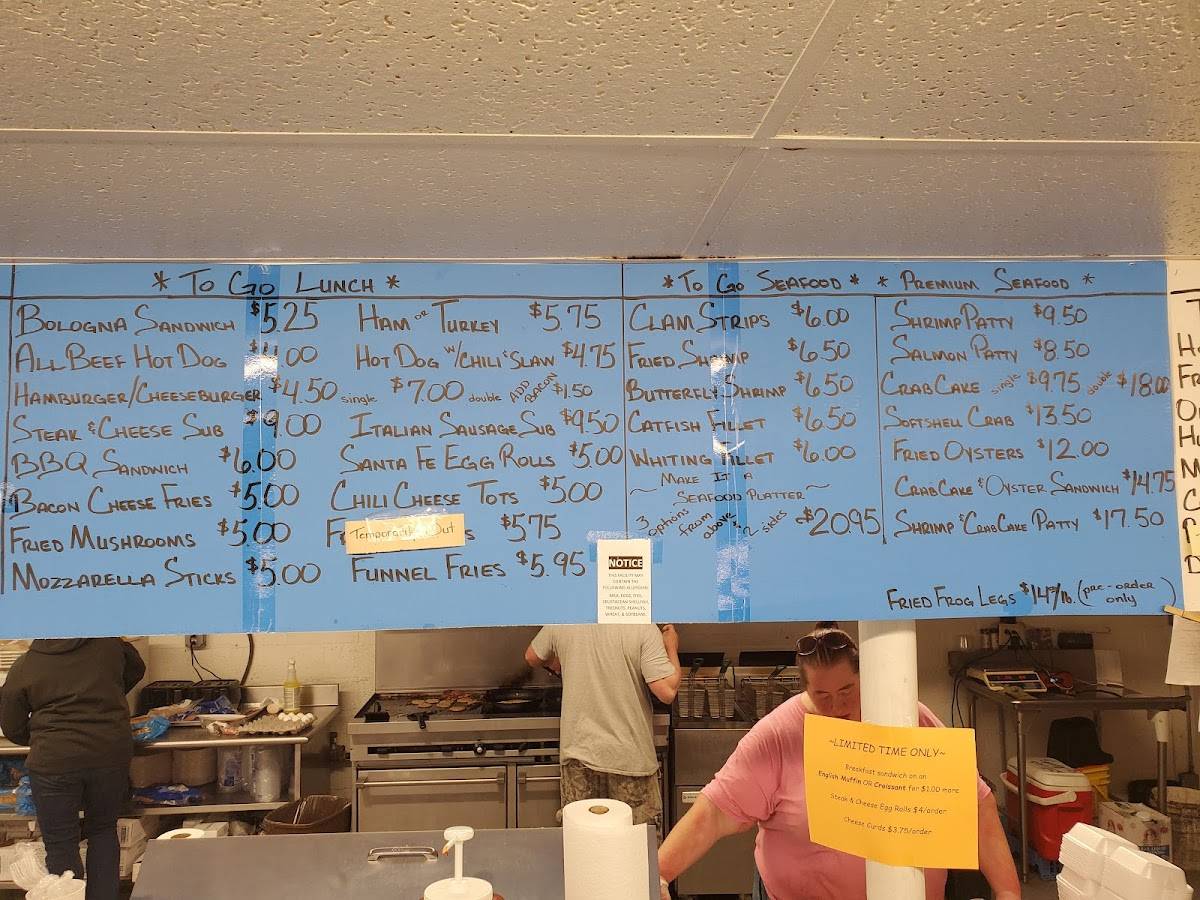 * To Go Lunch *
Bologna Sandwich $5.25
All Beef Hot Dog $4.00
Hamburger/Cheeseburger $4.50 single $7.00 double Add Bacon $1.50
Steak & Cheese Sub $9.00
BBQ Sandwich $6.00
Bacon Cheese Fries $5.00
Fried Mushrooms $5.00
Mozzarella Sticks $5.00
Ham or Turkey $5.75
Hot Dog w/Chili & Slaw $4.75
Italian Sausage Sub $9.50
Santa Fe Egg Rolls $5.00
Chili Cheese Tots $5.00
Temporarily Out $5.75
Funnel Fries $5.95
* To Go Seafood *
Clam Strips $6.00
Fried Shrimp $6.50
Butterfly Shrimp $6.50
Catfish Fillet $6.50
Whiting Fillet $6.00
~ Make It a
Seafood Platter ~
3 options from above & 2 sides $20.95
* Premium Seafood *
Shrimp Patty $9.50
Salmon Patty $8.50
Crab Cake single $9.75 double $18.00
Softshell Crab $13.50
Fried Oysters $12.00
Crab Cake & Oyster Sandwich $14.75
Shrimp & Crab Cake Patty $17.50
Fried Frog Legs (pre-order only)
NOTICE
THIS FACILITY MAY
CONTAIN THE
FOLLOWING ALLERGENS
MILK, EGGS, FISH,
CRUSTACEAN SHELLFISH,
TREENUTS, PEANUTS,
WHEAT, & SOYBEANS
~LIMITED TIME ONLY~
Breakfast sandwich on an
English Muffin OR Croissant for $1.00 more
Steak & Cheese Egg Rolls $4/order
Cheese Curds $3.75/order